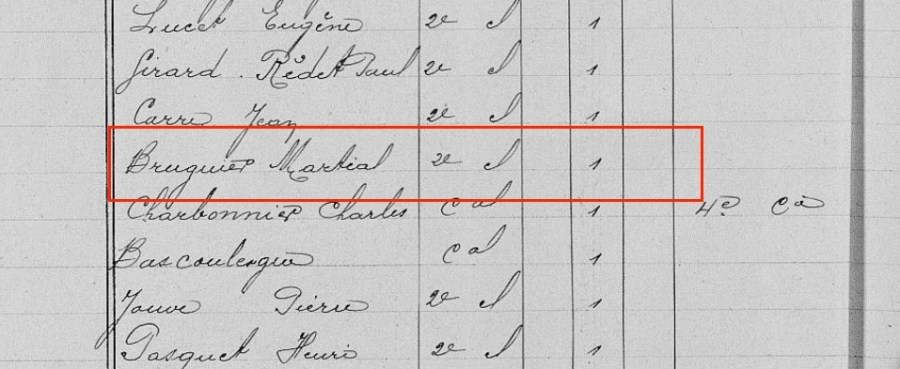 Lucet Eugène 2e cl 1
Girard . Rédet Paul 2e cl 1
Carre Jean 2e cl 1
Bruguier Martial 2e cl 1
Charbonnier Charles Cal 1 4e Cie
Bascoulergue Cal 1
Jouve Pierre 2e cl 1
Pasquet Henri 2e cl 1